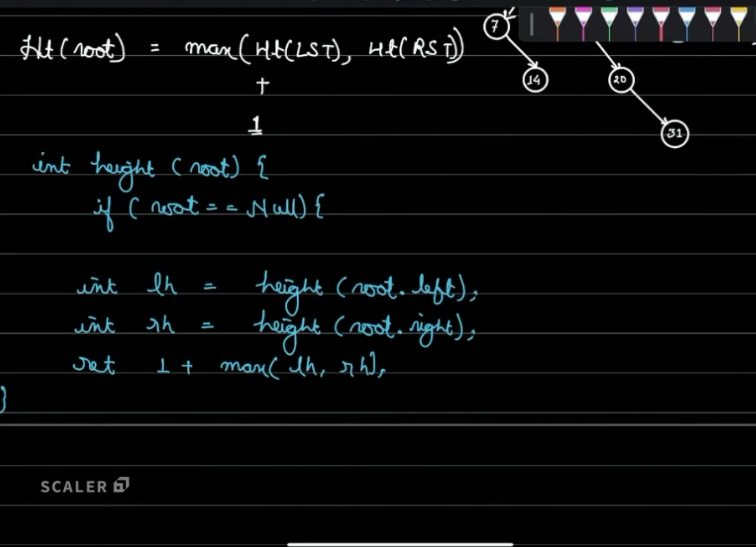 Ht(root) = max(Ht(LST), Ht(RST))
+
1
7
14
20
31
int height (root) {
if ( root == Null) {
int lh = height (root.left);
int rh = height (root.right);
ret 1 + max( lh, rh);
}
SCALER